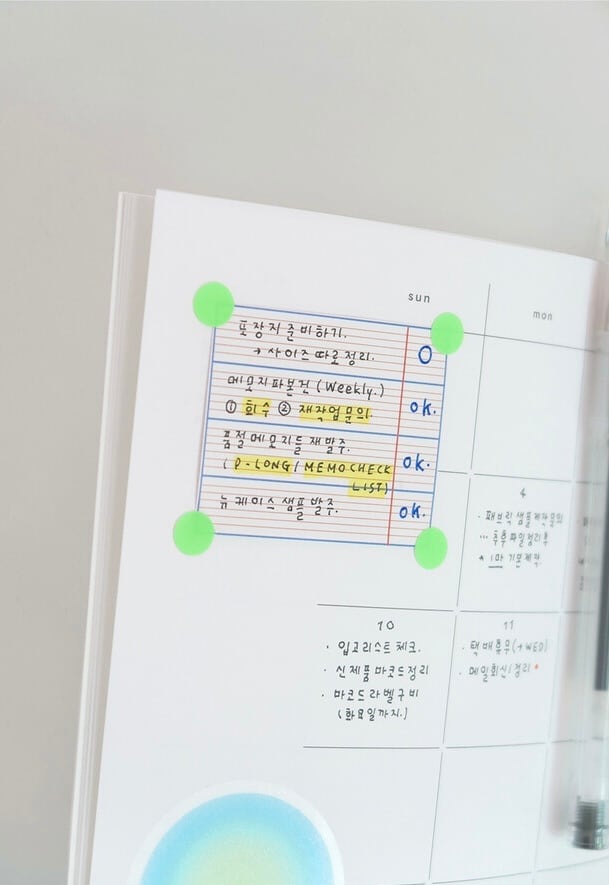 sun
mon
포장지준비하기.
→ 사이즈따로정리.
O
메모지파본건 (Weekly.)
① 회수 ② 재작업문의.
ok.
품절메모지들재발주.
( D-LONG / MEMO CHECK
LIST)
ok.
뉴케이스샘플발주.
ok.
4
· 패브릭샘플제작문의
··· 추후파일정리후
* 1마 기본제작.
10
· 입고리스트체크.
· 신제품바코드정리
· 바코드라벨구비
(화요일까지.)
11
· 택배휴무(→WED)
· 메일회신/정리